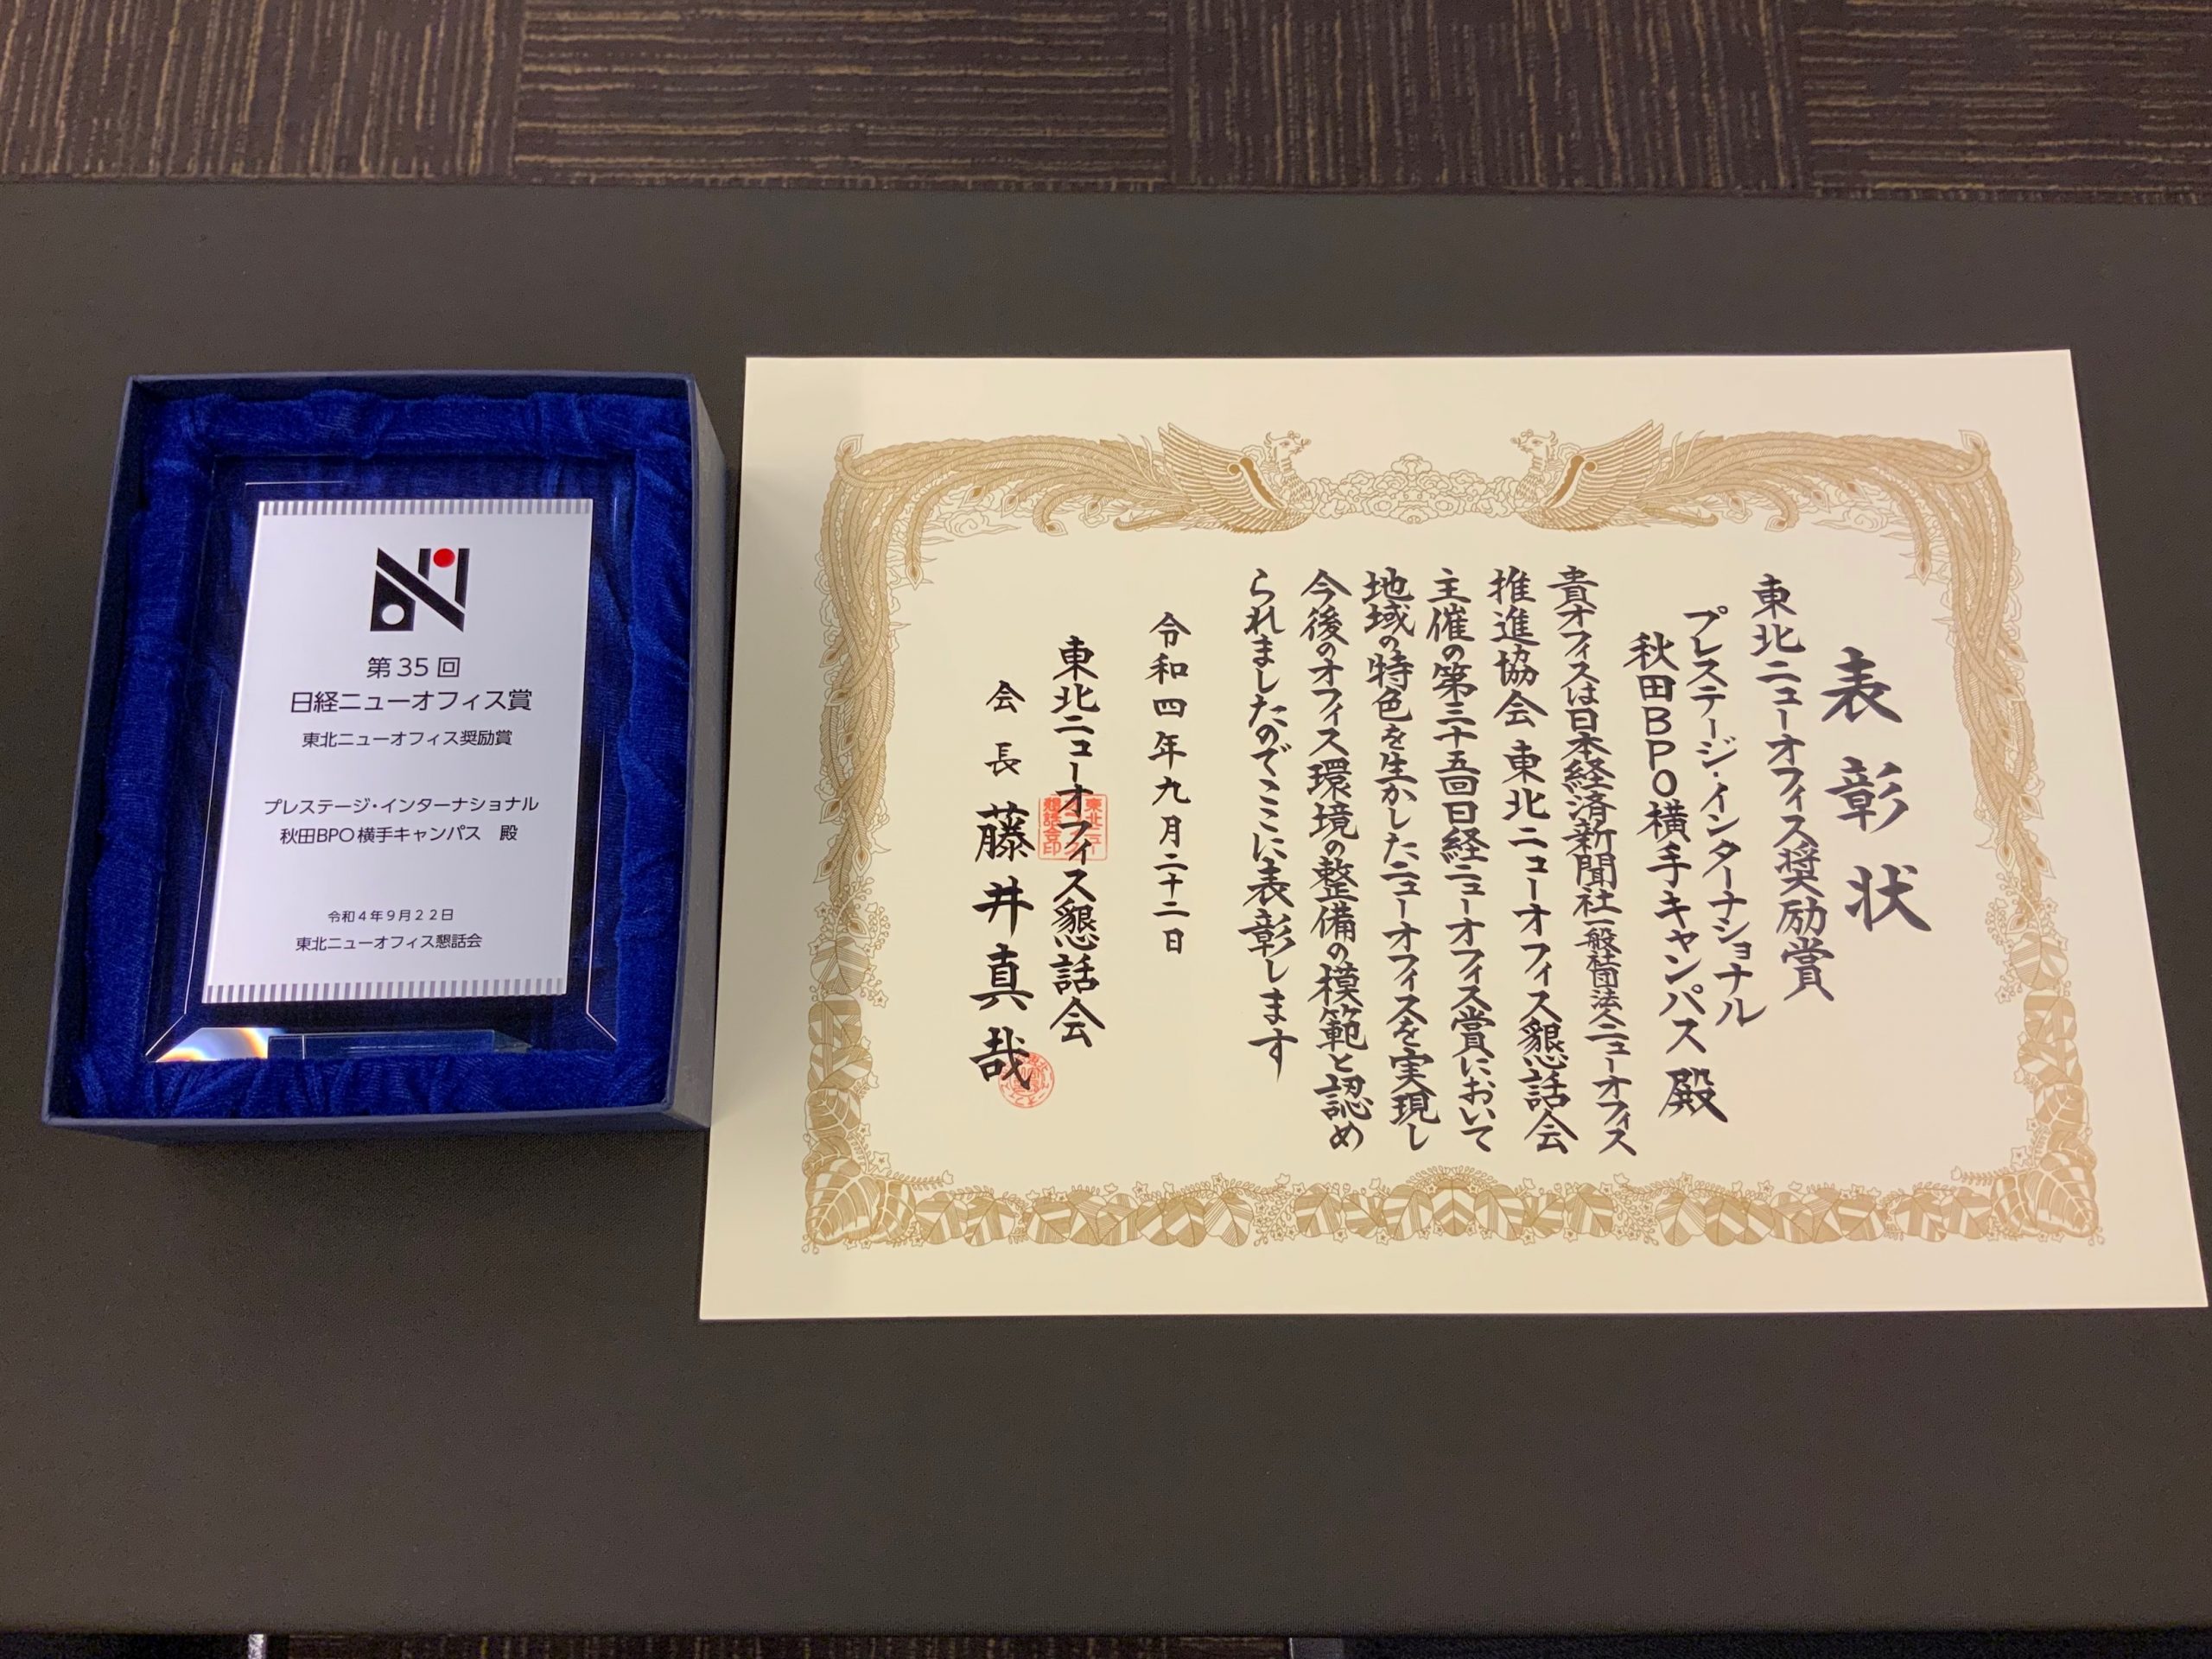 第35回
日経ニューオフィス賞
東北ニューオフィス奨励賞
プレステージ・インターナショナル
秋田BPO横手キャンパス 殿
令和4年9月22日
東北ニューオフィス懇話会
表彰状
東北ニューオフィス奨励賞
プレステージ・インターナショナル
秋田BPO横手キャンパス 殿
貴オフィスは日本経済新聞社一般社団法人ニューオフィス
推進協会 東北ニューオフィス懇話会
主催の第三十五回日経ニューオフィス賞において
地域の特色を生かしたニューオフィスを実現し
今後のオフィス環境の整備の模範と認め
られましたのでここに表彰します
令和四年九月二十二日
東北ニューオフィス懇話会
会長 藤井真哉
東北ニューオフィス懇話会印